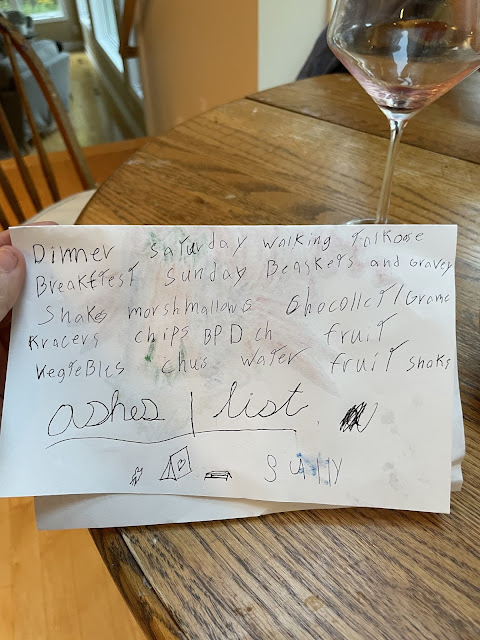 Dinner Saturday walking talkose
Breakftest Sunday Beaskets and Gravey
Shakes morshmallows Chocollet/Grame
Kracers chips BPD ch fruit
Vegteblts chus water fruit shaks
ashes | list
Sully